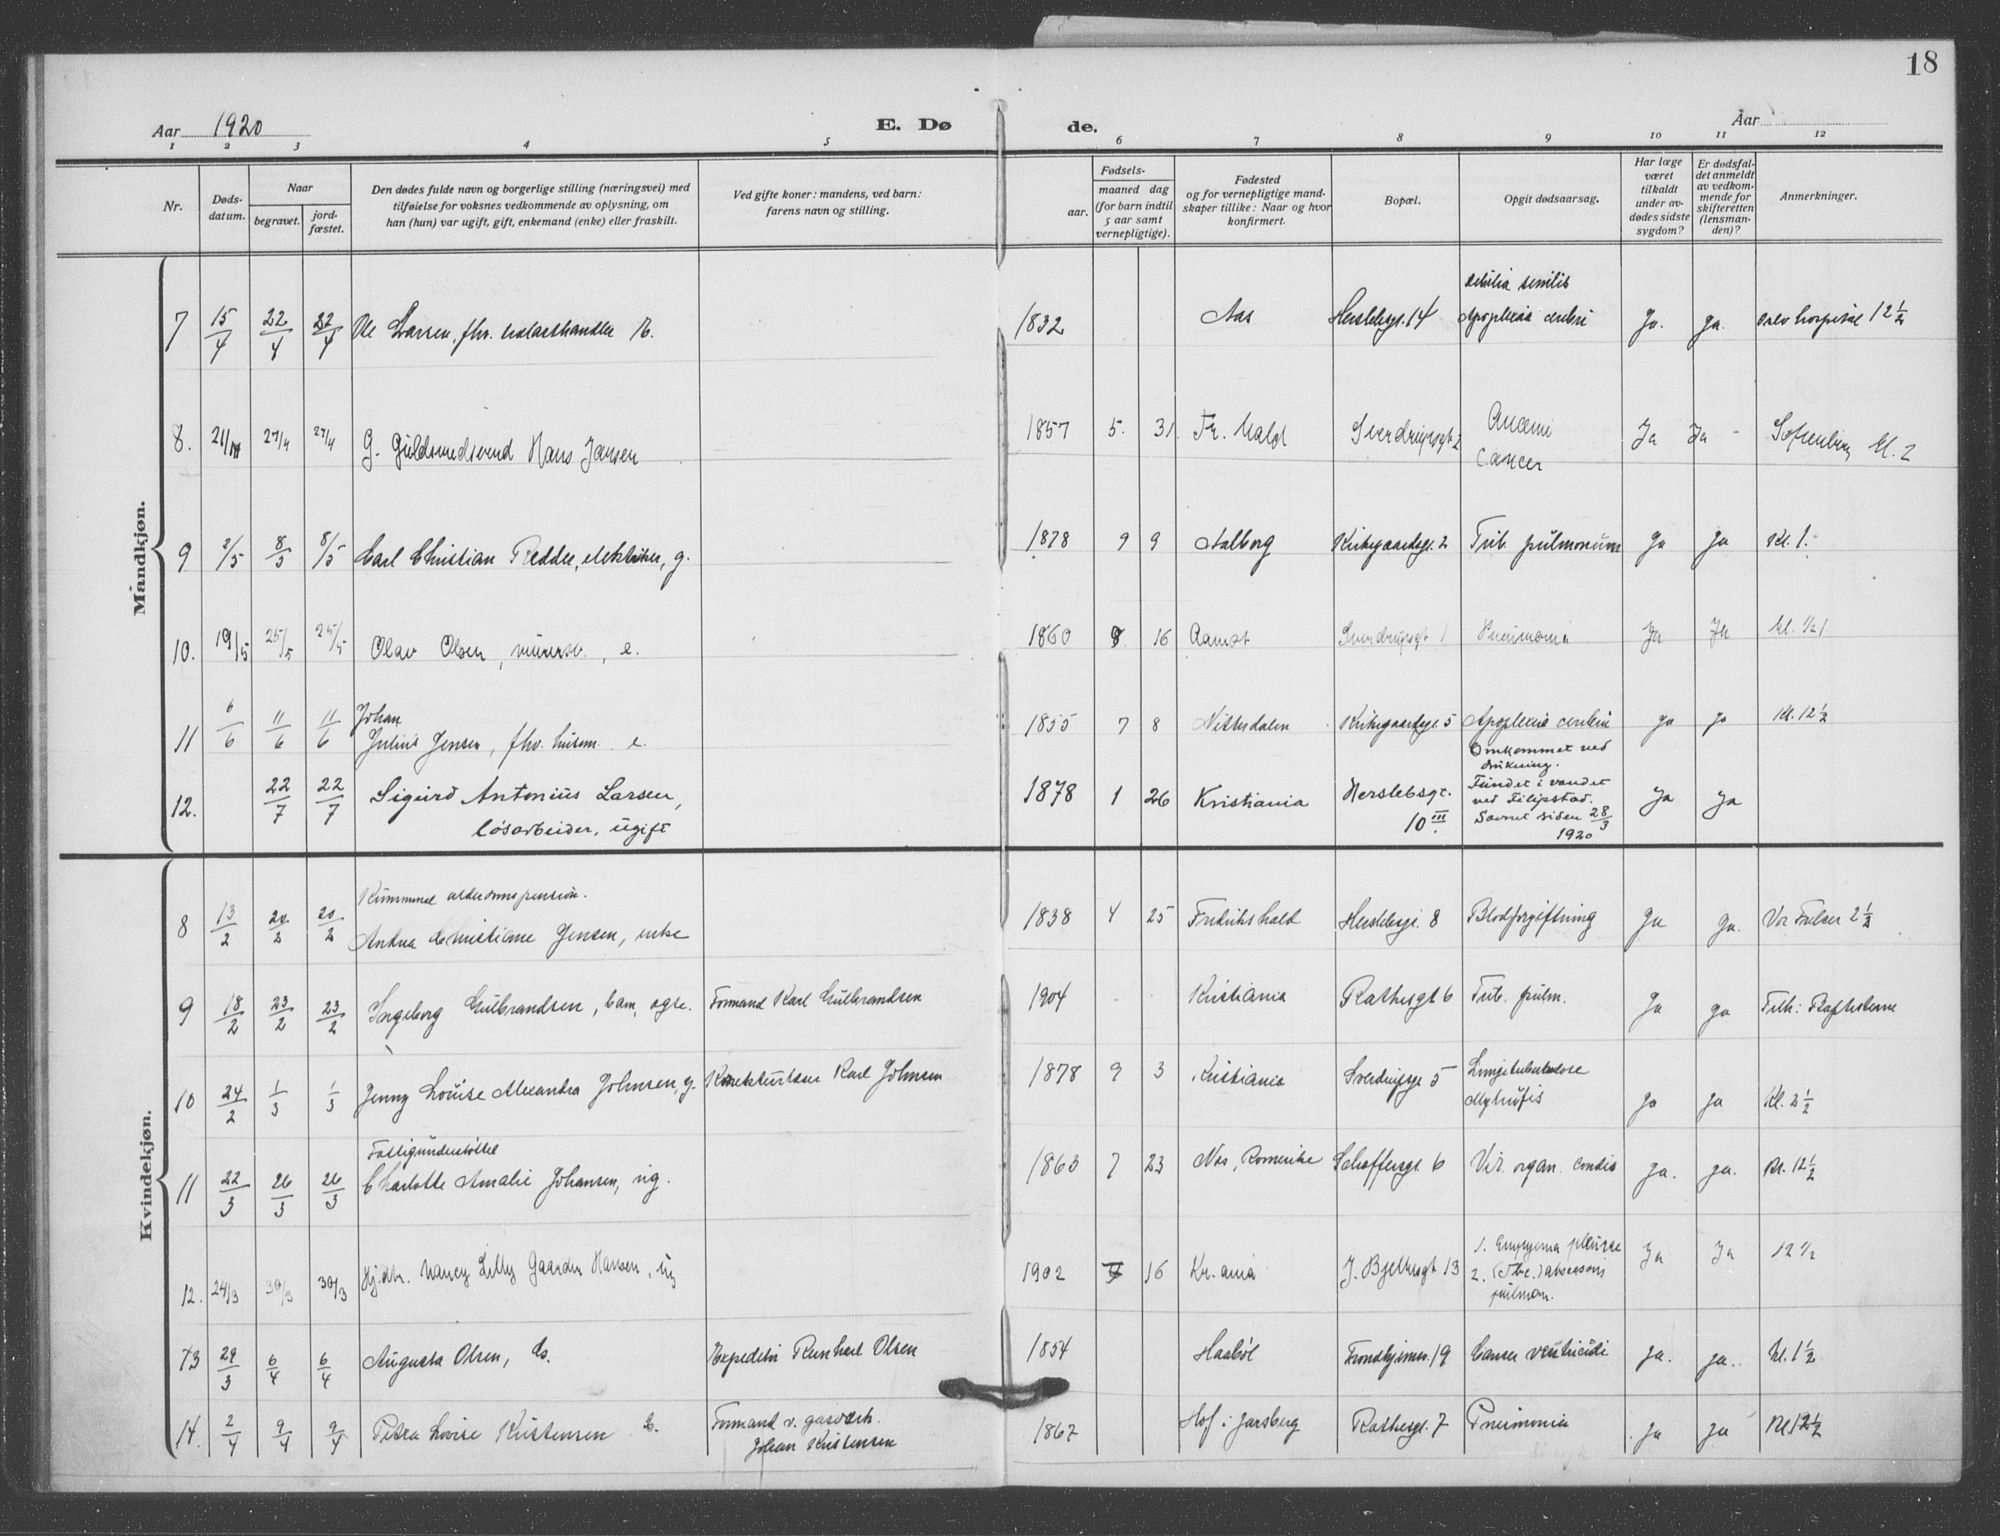 18
Aar 1920
E. Dø de.
Aar
1 2 3 4 5 6 7 8 9 10 11 12
Nr.
Døds-
datum.
Naar
begravet.
jord-
fæstet.
Den dødes fulde navn og borgerlige stilling (næringsvei) med
tilføielse for voksnes vedkommende av oplysning, om
han (hun) var ugift, gift, enkemand (enke) eller fraskilt.
Ved gifte koner: mandens, ved barn:
farens navn og stilling.
Fødsels-
aar.
maaned dag
(for barn indtil
5 aar samt
vernepligtige).
Fødested
og for vernepligtige mand-
skaper tillike: Naar og hvor
konfirmert.
Bopæl.
Opgit dødsaarsag.
Har læge
været
tilkaldt
under av-
dødes sidste
sygdom?
Er dødsfal-
det anmeldt
av vedkom-
mende for
skifteretten
(lensman-
den)?
Anmerkninger.
Mandkjøn.
7 15/4 22/4 22/4 Ole Larsen, fhv. E. 1832 Aas Herslebsgt. 14 senilis
Apoplexia cerebri Ja. Ja. Oslo hospital 12 1/2
8. 21/ 27/4 27/4 G. Guldsmedsvend Hans Jansen 1857 5. 31. Fr. Hald Sverdrupsgt 2 Anæmi
Cancer Ja Ja Sofienberg kl. 2
9 2/5 8/5 8/5 Carl Christian Redder, elektriker, g. 1878 9 9 Aalborg Kirkegaardsgt. 2 Tub. pulmonum Ja Ja Kl. 1.
10. 19/5 25/5 25/5 Olav Olsen, murersv., e. 1860 8 16 Aamot Sverdrupsgt 1 Pneumonia Ja Ja kl. 1/2 1
11 6/6 11/6 11/6 Johan
Julius Jensen, fhv. husm. e. 1855 7 8 Nittedalen Kirkegaardsgt. 5 Apoplexia cerebri Ja Ja Kl. 12 1/2
12. 22/7 22/7 Sigurd Antonius Larsen,
løsarbeider, ugift 1878 1 26 Kristiania Herslebsgt.
10 III Omkommet ved
drukning.
Fundet i vandet
ved Filipstad.
Savnet siden 28/3
1920 Ja Ja
Kvindekjøn.
8 13/2 20/2 20/2 Kommunal alderdomspension.
Andrea Christiane Jensen, enke 1838 4 25 Fredrikshald Herslebsgt. 8 Blodforgiftning Ja Ja. Vor Frelser 2 1/2
9 18/2 23/2 23/2 Ingeborg Gulbrandsen, barn, Formand Karl Gulbrandsen 1904 Kristiania Rathkesgt 6 Tub. pulm. Ja Ja Tilh: Baptisterne
10 24/2 1/3 1/3 Jenny Louise Alexandra Johnsen, g. Korrekturlæser Karl Johnsen 1878 9 3 Kristiania Sverdrupsgt 5 Lungetuberkulose
Ja Ja Kl. 2 1/2
11 22/3 26/3 26/3 Fattigunderstøttet
Charlotte Amalie Johansen, ug. 1863 7 23 Nes, Romerike Schøffersgt. 6 Vit. organ. cordis Ja. Ja. Kl. 12 1/2
12. 24/3 30/3 30/3 Hj.dtr. Nancy Lilly Gaarder Hansen, ug 1902 16 Kr.ania J. Bjelkesgt 13 1. Empyema pleurae
2. (Tbc.) absessus
pulmon. Ja Ja 12 1/2
13 29/3 6/4 6/4 Augusta Olsen, G. Expeditør Reinhart Olsen 1854 Haabøl Trondhjemsv. 19 Cancer ventriculi Ja. Ja. Kl. 1 1/2
14. 2/4 9/4 9/4 Petra Lovise Kristensen G. Formand v. gasverk.
Johan Kristensen 1867 Hof i Jarlsberg Rathkesgt. 7 Pneumonia Ja Ja Kl. 12 1/2